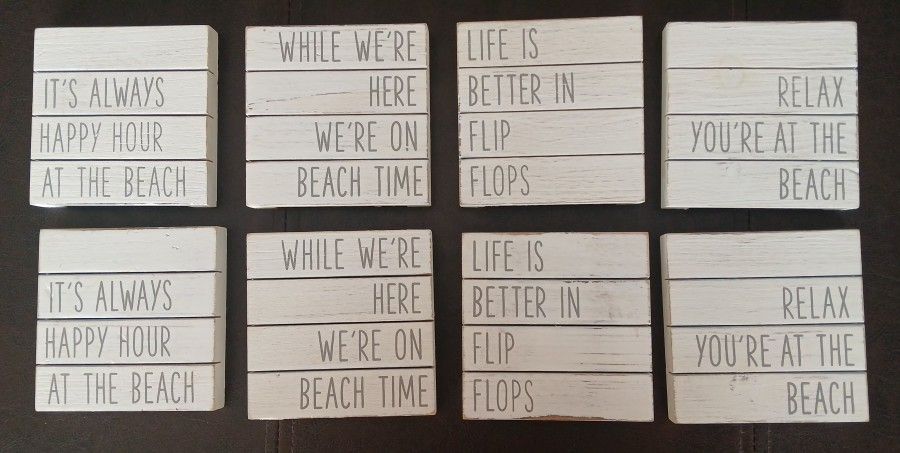 IT'S ALWAYS
HAPPY HOUR
AT THE BEACH
WHILE WE'RE
HERE
WE'RE ON
BEACH TIME
LIFE IS
BETTER IN
FLIP
FLOPS
RELAX
YOU'RE AT THE
BEACH
IT'S ALWAYS
HAPPY HOUR
AT THE BEACH
WHILE WE'RE
HERE
WE'RE ON
BEACH TIME
LIFE IS
BETTER IN
FLIP
FLOPS
RELAX
YOU'RE AT THE
BEACH